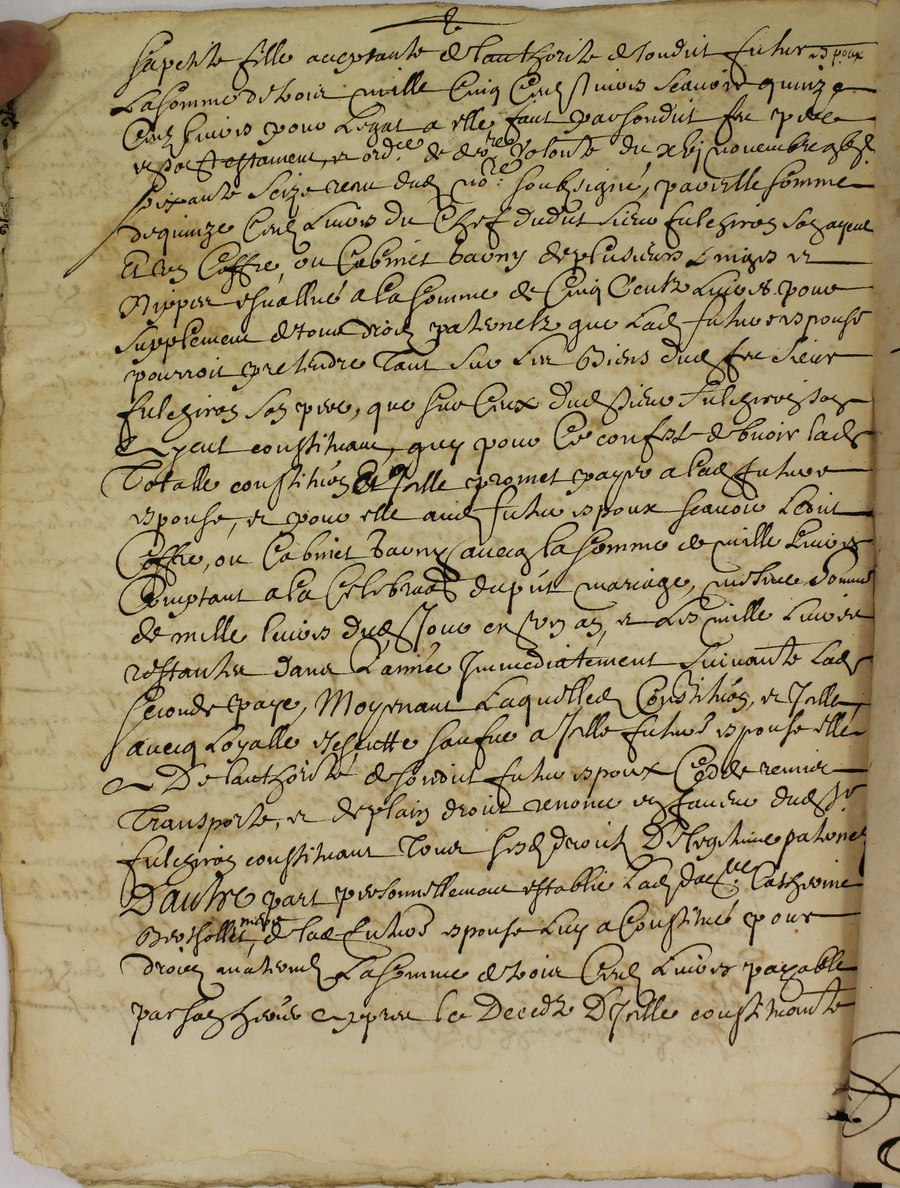 sa petite fille acceptante de lauthorite de sondit futur espoux
La somme de trois mille Cinq Cens livres scavoir quinze
Cens livres pour Legat a elle faict par sondit feu pere
et son testament et ordce de dernre volonte du xvj novembre
soixante seize receu dud nore soubsigné, pareille somme
de quinze Cens Livres du Chef dudit sieur fulchiron son ayeul
Et un Coffre, ou Cabinet garny de plusieurs Linges et
Nippes esvallué a la somme de Cinq Centz Livres pour
supplement de tous droicts paternelz que Lad future espouse
pourroit pretendre Tant sur les Biens dud feu sieur
fulchiron son pere, que sur Ceux dud sieur fulchiron son
ayeul constituant, quy pour Ce confesse debvoir lad
Totalle constituon Et Icelle promet payer a lad future
espouse, et pour elle aud futur espoux scavoir Ledit
Coffre, ou Cabinet garny avecq la somme de mille Livres
Comptant a la Celebraon du pnt mariage, mesme somme
de mille livres dud Jour en un an, et Les mille Livres
restantes dans L'année Immediatement suivante Lad
seconde paye, Moyenant Laquelle Constituon, et Icelle
avecq Loyalle escheutte sauf a Icelle future espouse elle
De lauthorité de sondit futur espoux Cede remet
Transporte, et de plain droict renonce en faveur dud sr
fulchiron constituant Tous sesd droicts De legitime paternel
D'autre part personnellement establie Lad dalle Catherine
Berthollet mere de lad future espouse Luy a Constitué pour
droicts maternels La somme de trois Cens Livres payable
par son heritier apres le Decedz D'Icelle constituante